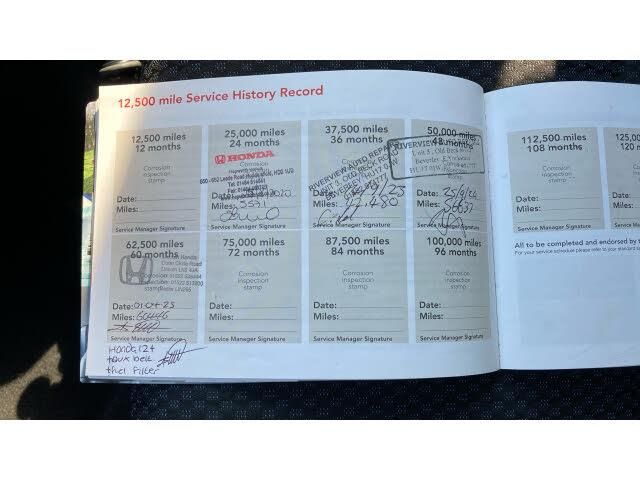 12,500 mile Service History Record
12,500 miles
12 months
Corrosion
inspection
stamp
Date:
Miles:
Service Manager Signature
25,000 miles
24 months
HONDA
Date: 2020
Miles: 5591
Service Manager Signature
37,500 miles
36 months
RIVERVIEW AUTO REPAIRS
UNIT 5, OLD BECK ROAD
BEVERLEY HU17 0JW
Date:
Miles: 47,480
Service Manager Signature
50,000 miles
48 months
RIVERVIEW
Unit 5, Old Beck Road
Beverley
HU17 0JW
Date: 25/4/24
Miles: 56037
Service Manager Signature
62,500 miles
60 months
Honda
Date: 01-04-25
Miles: 60446
Service Manager Signature
75,000 miles
72 months
Corrosion
inspection
stamp
Date:
Miles:
Service Manager Signature
87,500 miles
84 months
Corrosion
inspection
stamp
Date:
Miles:
Service Manager Signature
100,000 miles
96 months
Corrosion
inspection
stamp
Date:
Miles:
Service Manager Signature
fuel Filter
112,500 miles
108 months
Corrosion
inspection
stamp
Date:
Miles:
Service Manager Signature
125,00
120 m
Date:
Miles:
Service Ma
All to be completed and endorsed by t
For your service schedule please refer to your standard s